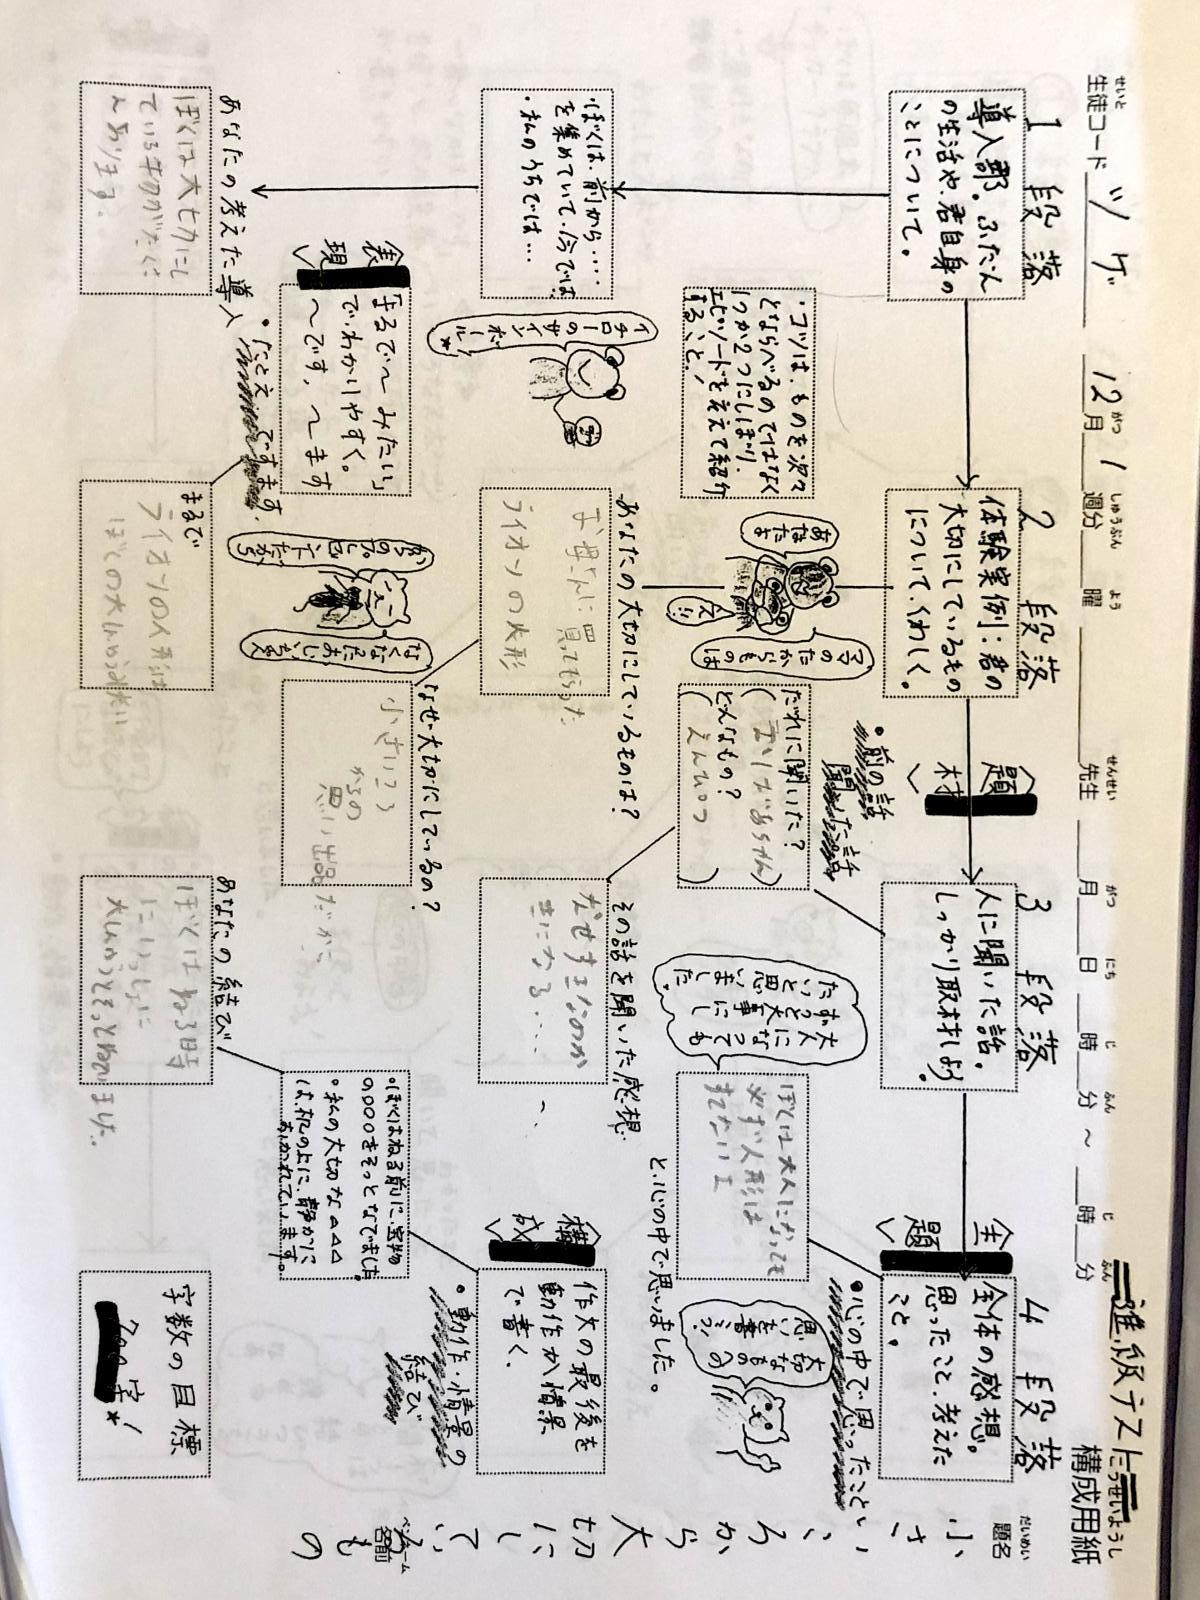 進級テスト
構成用紙
こうせいようし
題名
だいめい
小さいころから大切にしているもの
名前
ペンネーム
生徒コード
せいと
ツゲ
12月1週分
曜
先生
月 日 時 分 ～ 時 分
1段落
導入部。ふだん
の生活や、君自身の
ことについて。
・ぼくは、前から……
を集めていて、今では
・私のうちでは…
あなたの考えた導入
ぼくは大切にし
ているものがたくさ
んあります。
2段落
体験実例：君の
大切にしているもの
について、くわしく。
・コツは、ものを次々
とならべるのではなく
1つか2つにしぼり、
エピソードを交えて紹介
すること！
イチローの
サイン
ボール*
あなたよ
ママの
たからものは
えっ!!
あなたの大切にしているものは？
お母さんに買ってもらった
ライオンの人形
なぜ大切にしているの？
小さいころ
からの
思い出品だから
なくなった
おじいちゃん
からの
プレゼント
だから
表現
「まるで～みたい」
で、わかりやすく。
～です、～ます
・たとえ
まるで
ライオンの人形は
3段落
人に聞いた話。
しっかり取材しよう。
題材
・前の話
聞いた話
だれに聞いた？
（おばあちゃん）
どんなもの？
（えんぴつ）
その話を聞いた感想
なぜすきなのか
気になる……
4段落
全体の感想。
思ったこと、考えた
こと。
主題
・心の中で思ったこと
大人になっても
ずっと大事にし
たいと思い
ました
大切なものへの
思いを書こう！
ぼくは大人になっても
必ず人形は
すてないよ
と、心の中で思いました。
構成
作文の最後を
動作か情景
で書く。
・動作・情景の
結び
・ぼくはねる前に、宝物
の○○○○をそっとなでました。
・私の大切な△△△
は、机の上に、静かに
おかれています。
あなたの結び
ぼくはねる時
にいっしょに
字数の目標
700字！*